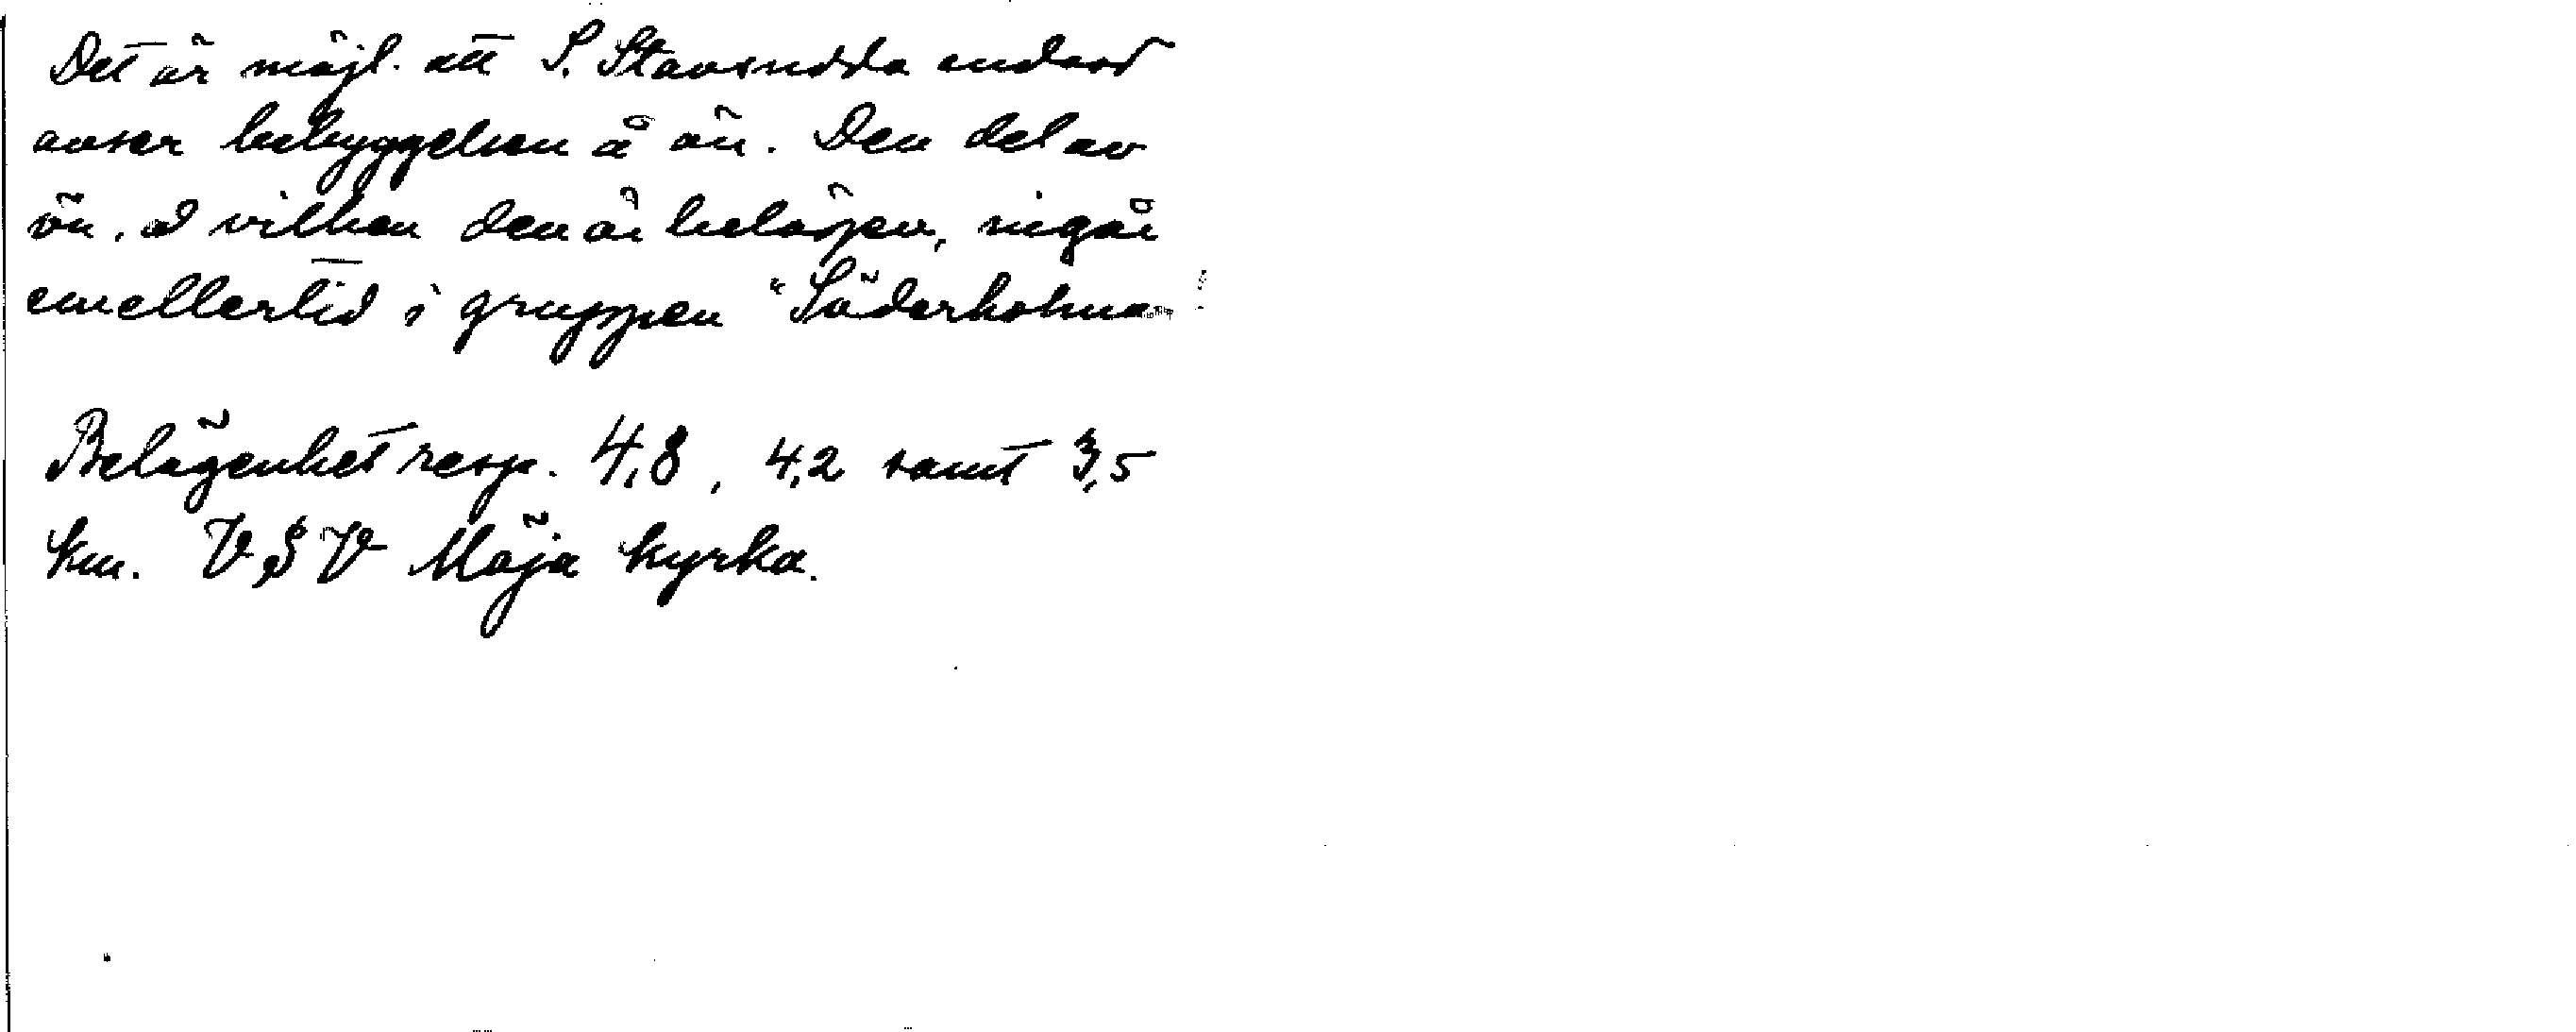 Det är möjl. att S. Stavsudda endast
avser bebyggelsen å ön. Den del av
ön, å vilken den är belägen, ingår
emellertid i gruppen "Söderholmar"
Belägenhet resp. 4,8, 4,2 samt 3,5
km. VSV Möja kyrka.